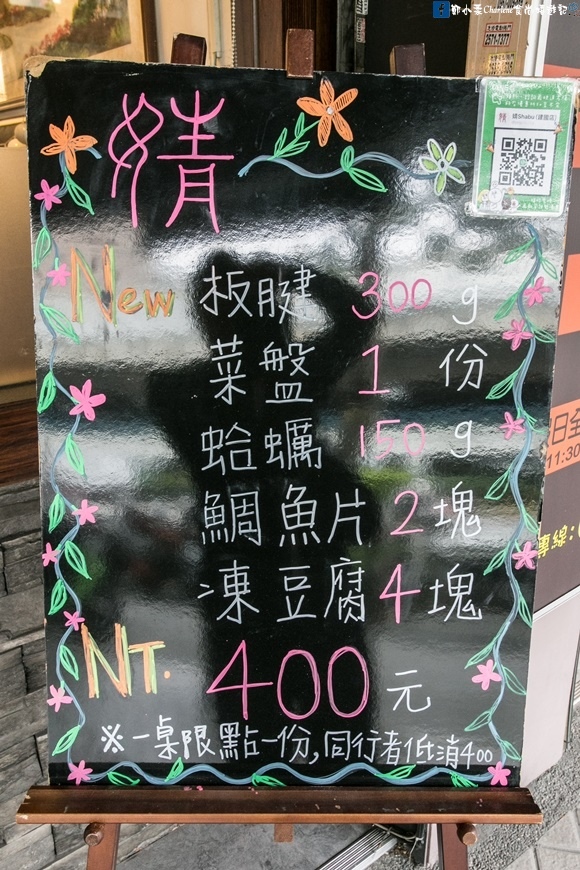 鄒小柔Charlene食尚窩遊記
2571-7377
婧
婧Shabu (建國店)
New 板腱 300 g
菜盤 1 份
蛤蠣 150 g
鯛魚片 2 塊
凍豆腐 4 塊
NT. 400 元
※一桌限點一份,同行者低消400
11:30
專線: